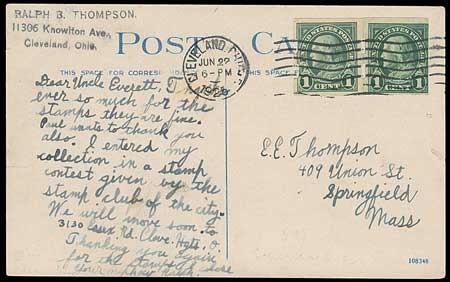 RALPH B. THOMPSON.
11306 Knowlton Ave.
Cleveland, Ohio.
POST CA
THIS SPACE FOR CORRESPOND
THIS SPACE FOR
CLEVELAND, OHIO
JUN 22
6-PM
UNITED STATES POSTAGE
1 CENT 1
UNITED STATES POSTAGE
1 CENT 1
Dear Uncle Everett,
ever so much for the
stamps they are fine.
Paul wants to thank you
also. I entered my
collection in a stamp
contest given by the
stamp club of the city.
We will move soon to
3130 Rd. Cleve. Hgts. O.
Thanking you again
for the stamps I close
your nephew Ralph
E.E. Thompson
409 Union St.
Springfield
Mass
108346